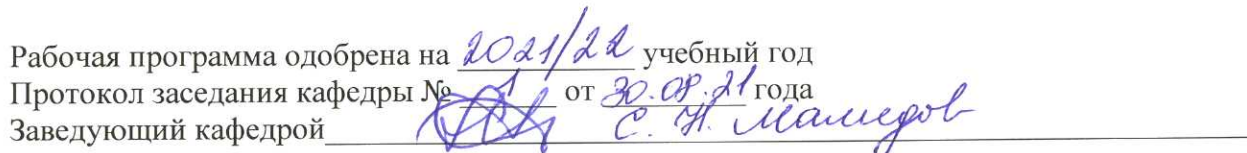 Рабочая программа одобрена на 2021/22 учебный год
Протокол заседания кафедры № 1 от 30.08.21 года
Заведующий кафедрой С. Н. Мамедов